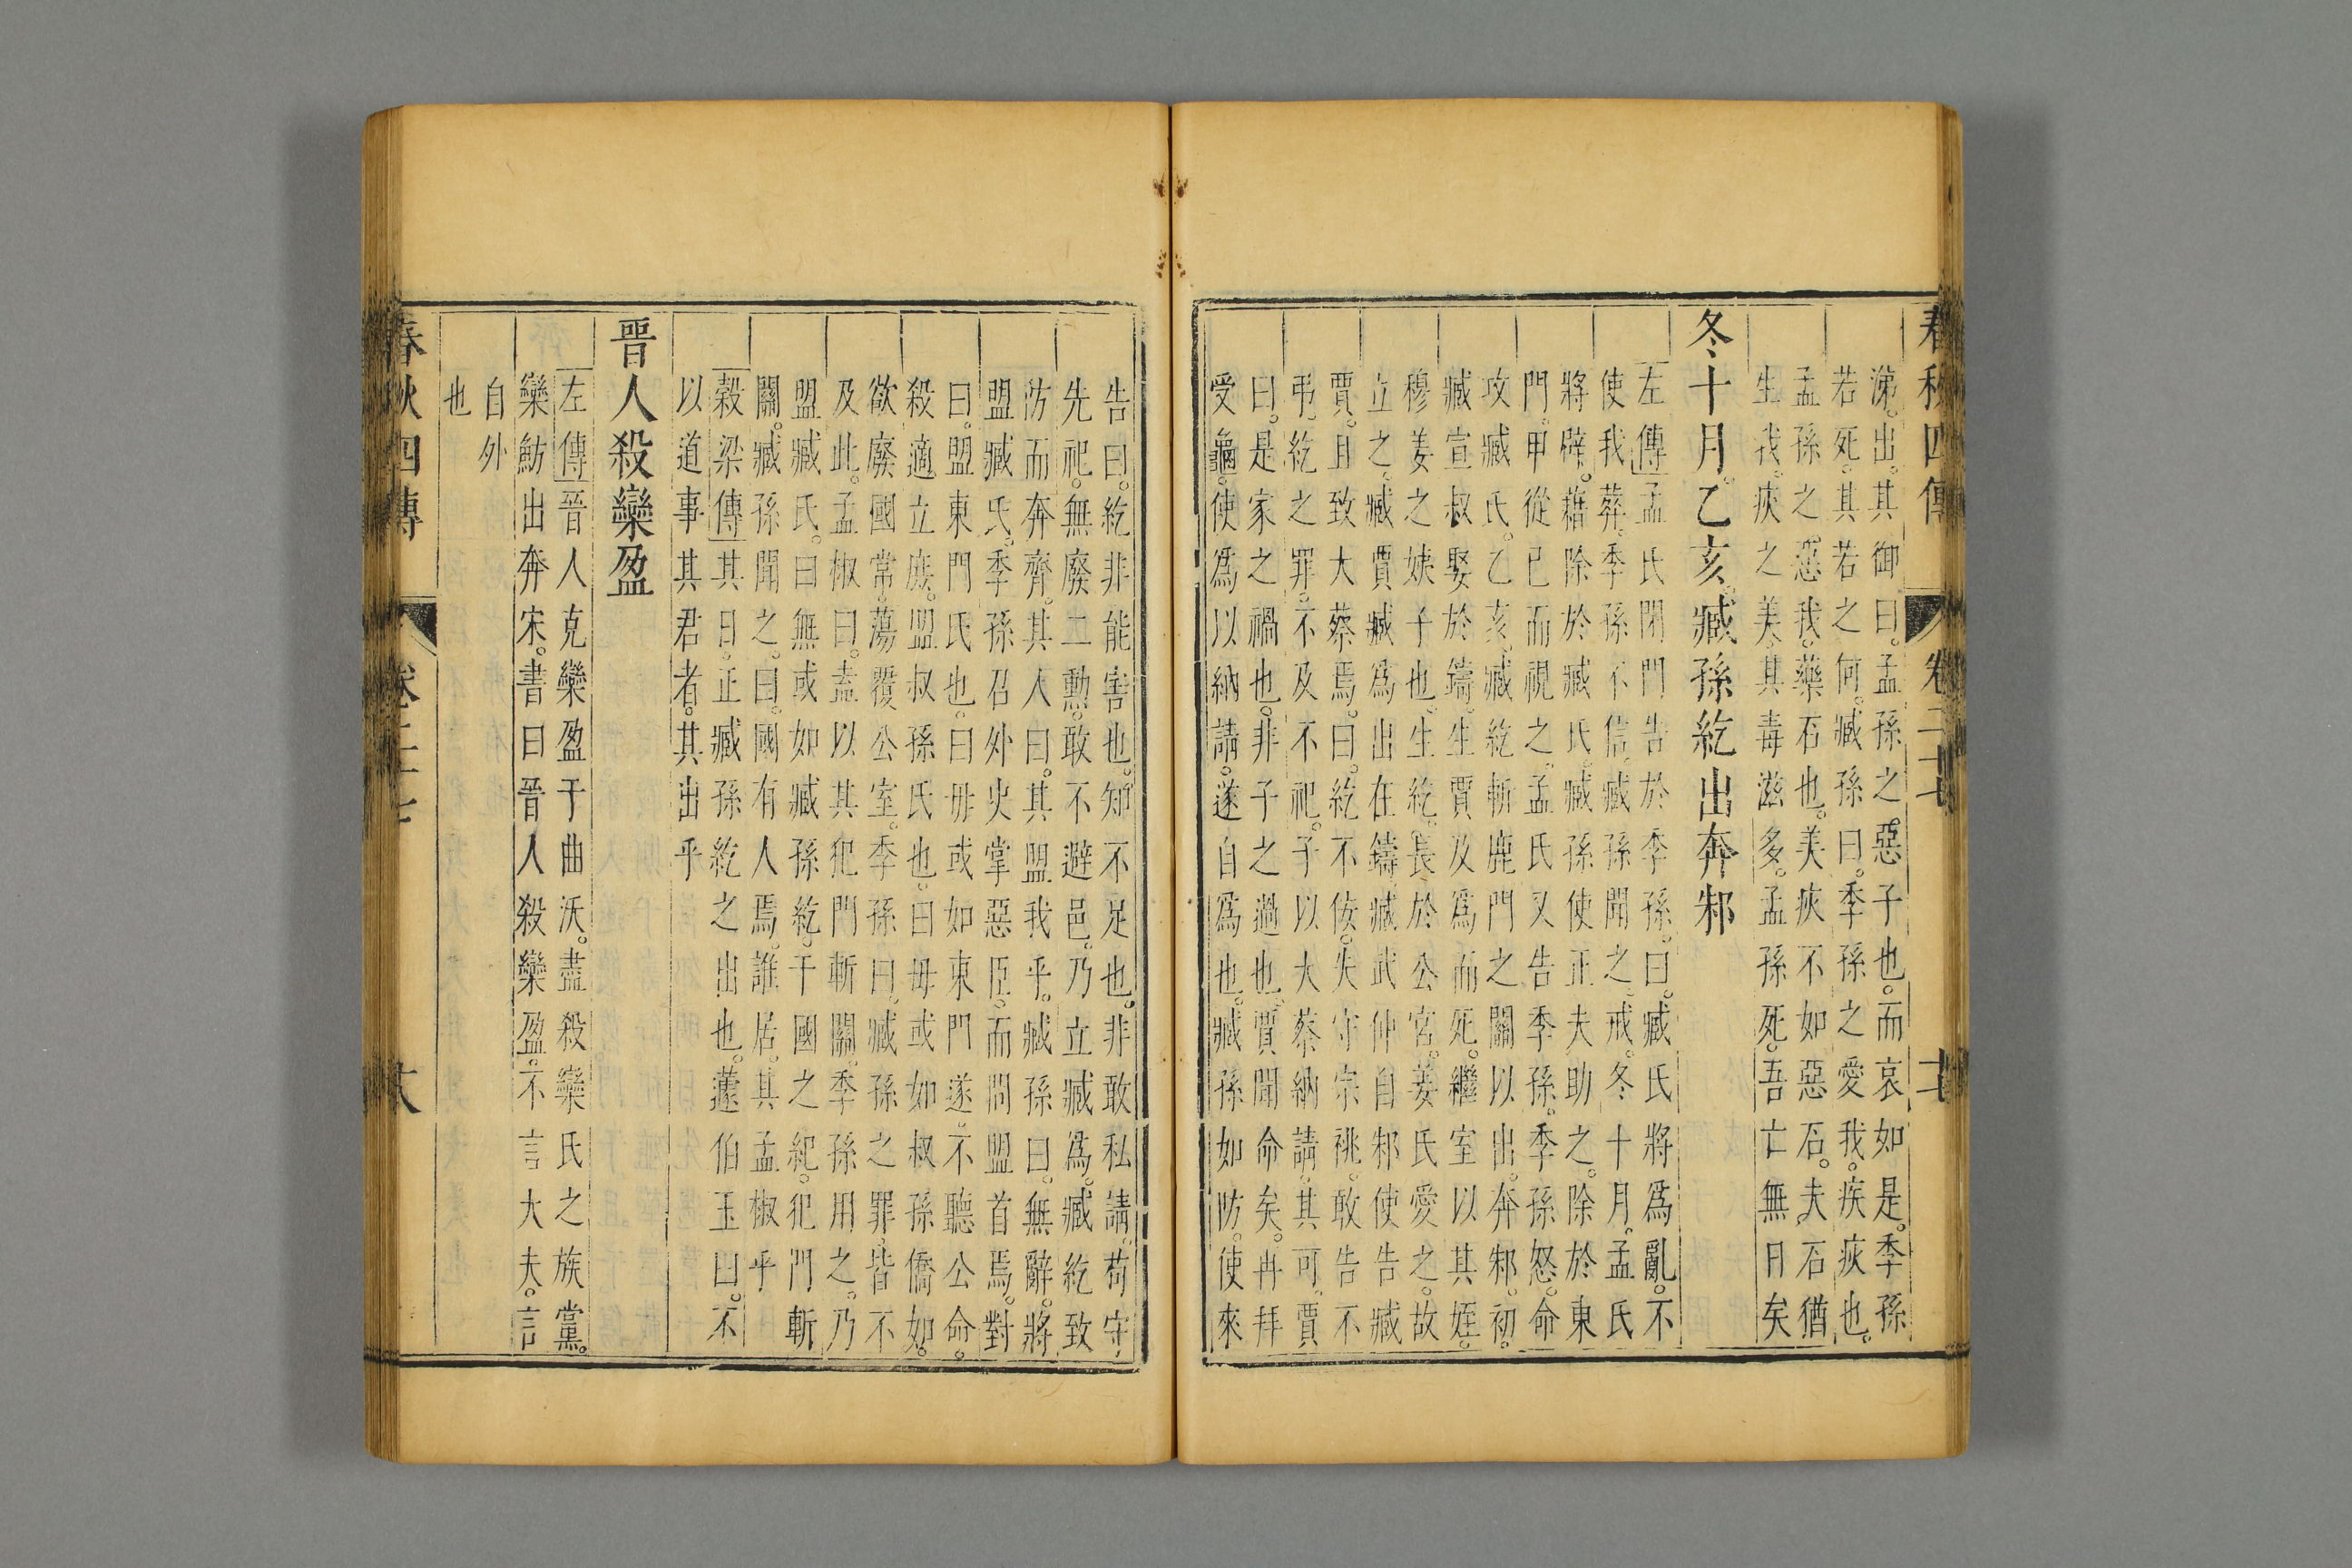 春秋四傳 卷二十七 十七
涕。出。其御曰。孟孫之惡子也。而哀如是。季孫
若死。其若之何。臧孫曰。季孫之愛我。疾疢也。
孟孫之惡我。藥石也。美疢不如惡石。夫石猶
生我。疢之美。其毒滋多。孟孫死。吾亡無日矣
冬十月。乙亥。臧孫紇出奔邾
左傳孟氏閉門告於季孫。曰。臧氏將爲亂。不
使我葬。季孫不信。臧孫聞之。戒。冬十月。孟氏
將辟。藉除於臧氏。臧孫使正夫助之。除於東
門。甲從已而視之。孟氏又告季孫。季孫怒。命
攻臧氏。乙亥。臧紇斬鹿門之關以出。奔邾。初。
臧宣叔娶於鑄。生賈及爲而死。繼室以其姪。
穆姜之姨子也。生紇。長於公宮。姜氏愛之。故
立之。臧賈臧爲出在鑄。臧武仲自邾使告臧
賈。且致大蔡焉。曰。紇不佞。失守宗祧。敢告不
弔。紇之罪。不及不祀。子以大蔡納請。其可。賈
曰。是家之禍也。非子之過也。賈聞命矣。再拜
受龜。使爲以納請。遂自爲也。臧孫如防。使來
告曰。紇非能害也。知不足也。非敢私請。苟守
先祀。無廢二勳。敢不避邑。乃立臧爲。臧紇致
防而奔齊。其人曰。其盟我乎。臧孫曰。無辭。將
盟臧氏。季孫召外史掌惡臣。而問盟首焉。對
曰。盟東門氏也。曰。毋或如東門遂。不聽公命。
殺適立庶。盟叔孫氏也。曰。毋或如叔孫僑如。
欲廢國常。蕩覆公室。季孫曰。臧孫之罪。皆不
及此。孟椒曰。盍以其犯門斬關。季孫用之。乃
盟臧氏。曰。無或如臧孫紇。干國之紀。犯門斬
關。臧孫聞之。曰。國有人焉。誰居。其孟椒乎
穀梁傳其日。正臧孫紇之出也。蘧伯玉曰。不
以道事其君者。其出乎
晉人殺欒盈
左傳晉人克欒盈于曲沃。盡殺欒氏之族黨。
欒魴出奔宋。書曰晉人殺欒盈。不言大夫。言
自外
也
春秋四傳 卷二十七 十八